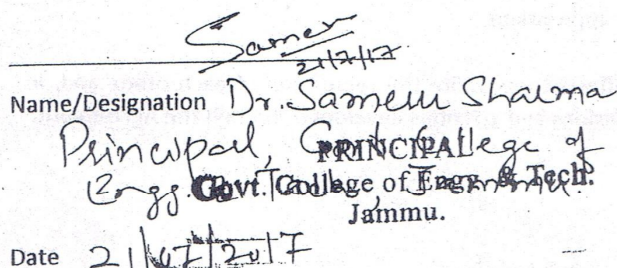 Sameru
21/7/17
Name/Designation Dr. Sameru Sharma
Principal, Govt College of
PRINCIPAL
Engg. & Tech. Jammu.
Govt. College of Engg. & Tech.
Jammu.
Date 21/07/2017